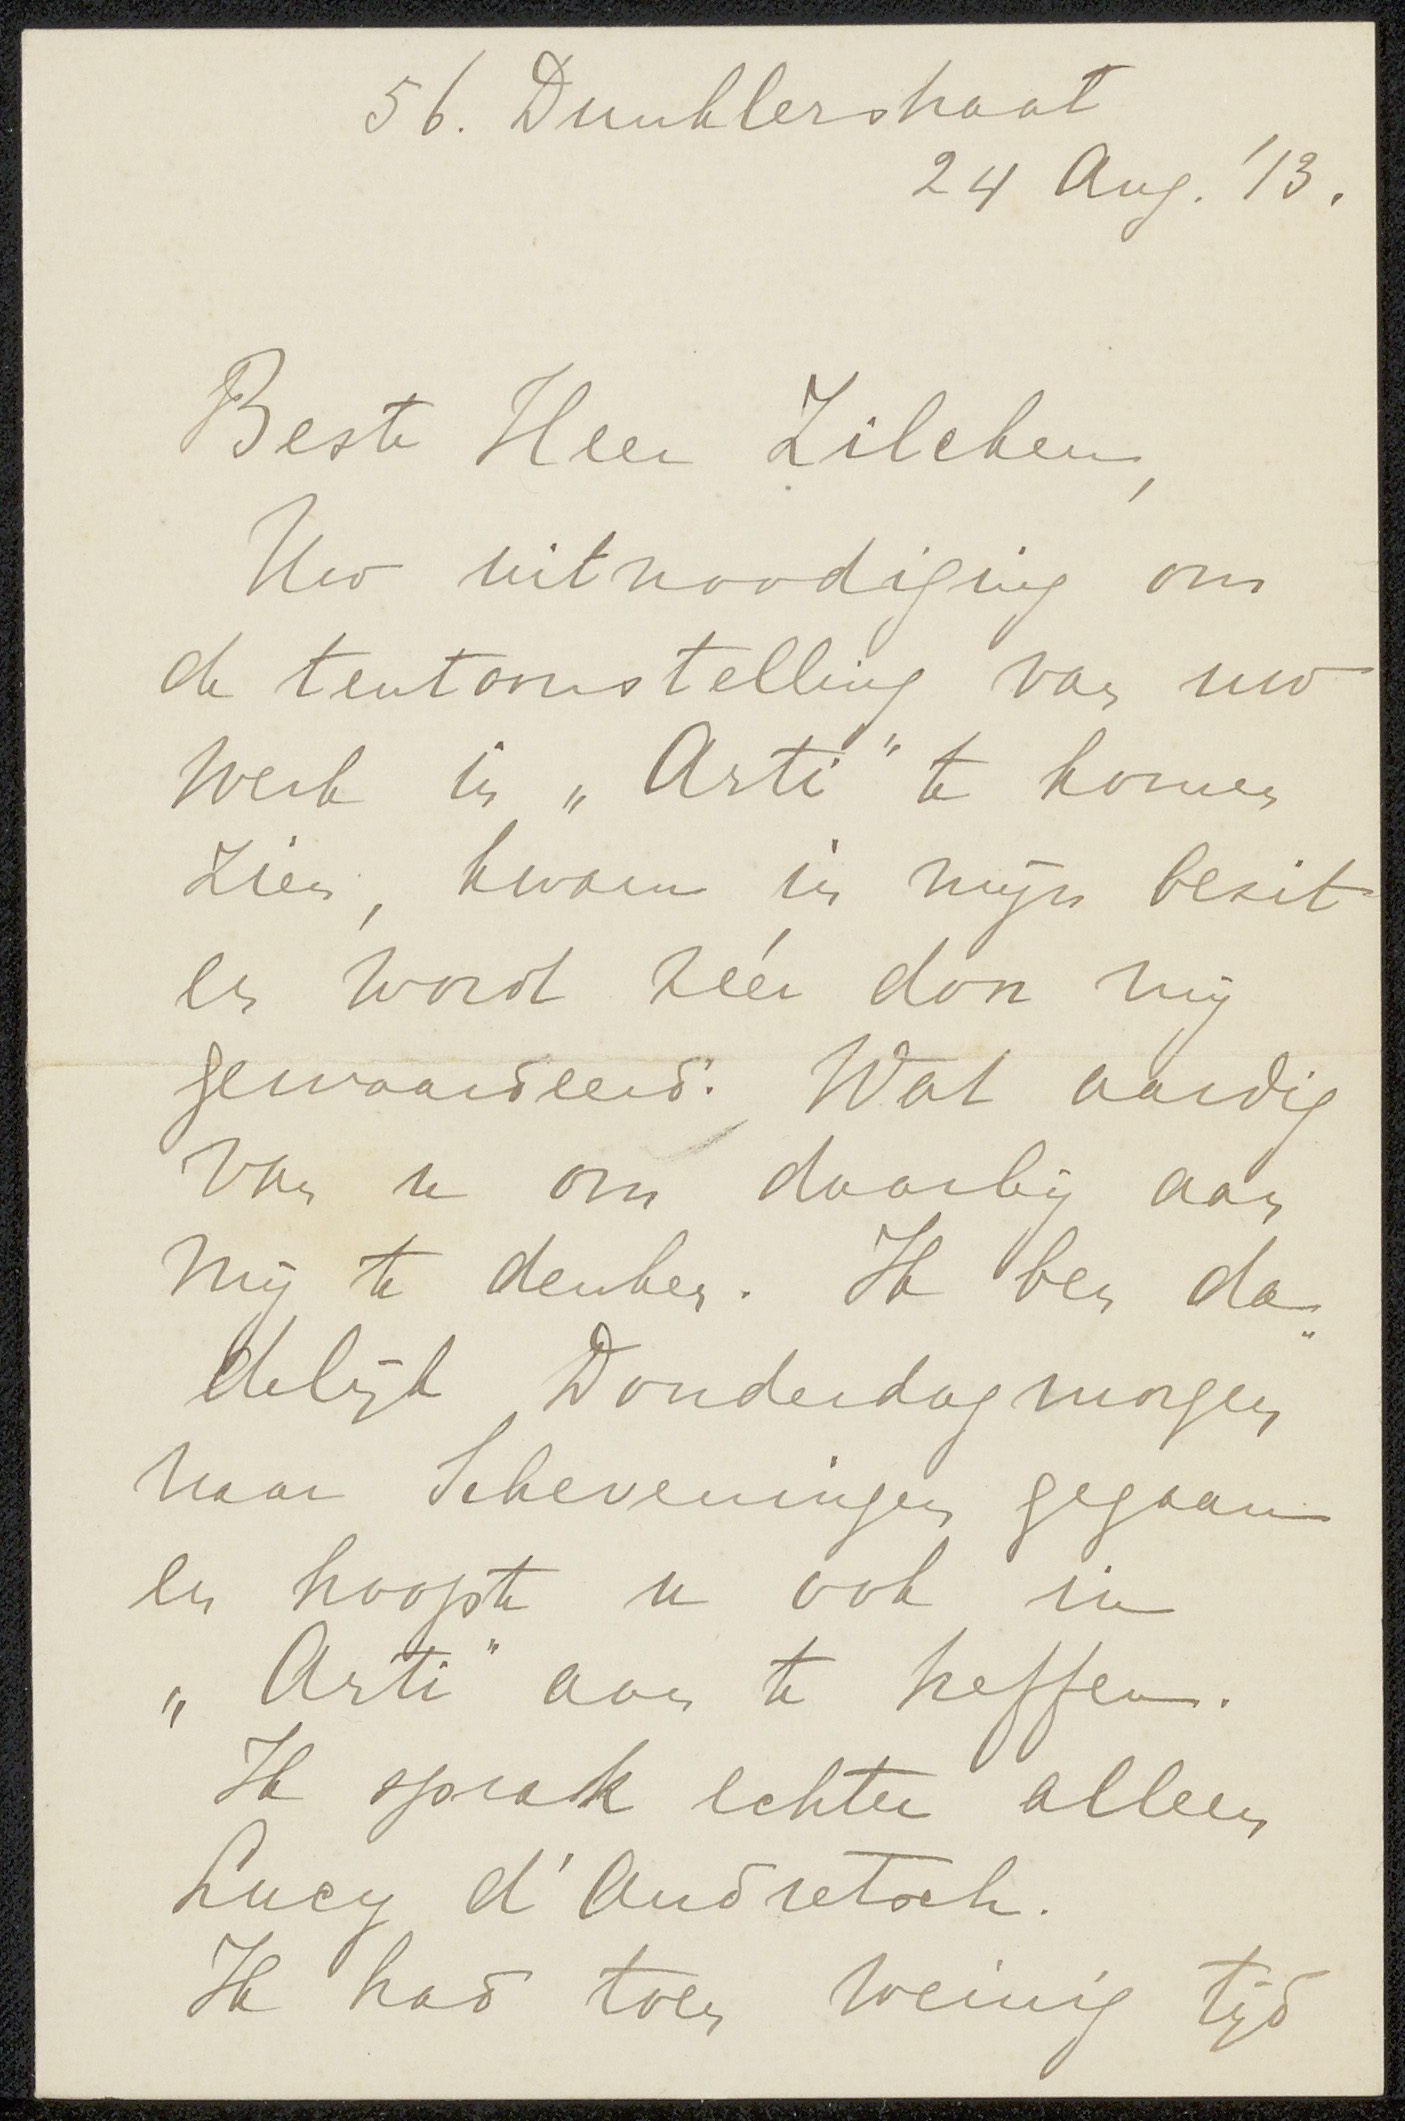 56. Dunklerstraat
24 Aug. '13.
Beste Heer Zilcken,
Uw uitnoodiging om
de tentoonstelling van uw
werk in „Arti" te komen
zien, kwam in mijn bezit
en wordt zéér door mij
gewaardeerd. Wat aardig
van u om daarbij aan
mij te denken. Ik ben da„
delijk Donderdagmorgen
naar Scheveningen gegaan
en hoopte u ook in
„Arti" aan te treffen.
Ik sprak echter alleen
Lucy d'Audretsch.
Ik had toen weinig tijd